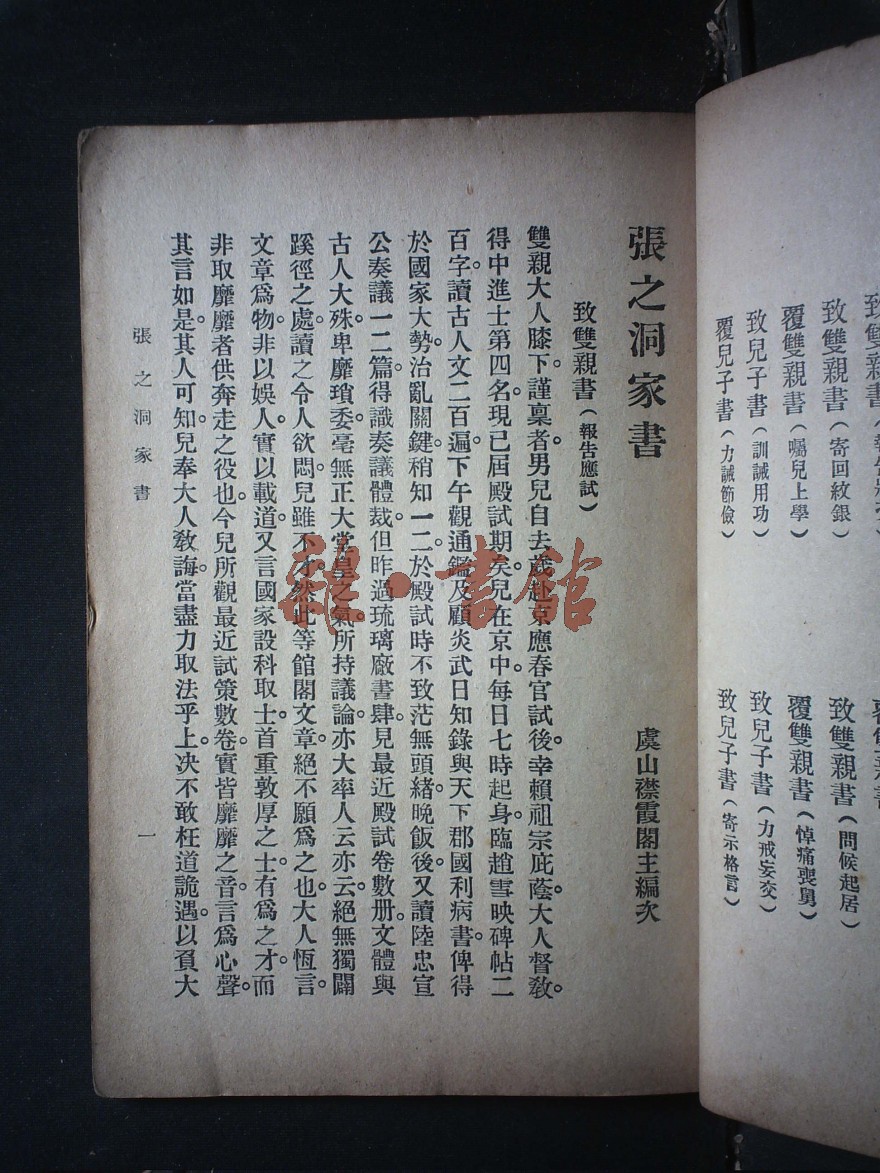 致雙親書
致雙親書（寄回紋銀）
覆雙親書（囑兒上學）
致兒子書（訓誡用功）
覆兒子書（力誡節儉）
致雙親書（問候起居）
覆雙親書（悼痛喪舅）
致兒子書（力戒妄交）
致兒子書（寄示格言）
張之洞家書
虞山襟霞閣主編次
致雙親書（報告應試）
雙親大人膝下。謹稟者男兒自去歲赴京應春官試後。幸賴祖宗庇蔭。大人督教。
得中進士第四名。現已屆殿試期矣。兒在京中。每日七時起身。臨趙雪映碑帖二
百字。讀古人文二百遍。下午觀通鑑及顧炎武日知錄與天下郡國利病書。俾得
於國家大勢。治亂關鍵。稍知一二。於殿試時不致茫無頭緒。晚飯後。又讀陸忠宣
公奏議一二篇。得識奏議體裁。但昨過琉璃廠書肆。見最近殿試卷數册。文體與
古人大殊。卑靡瑣委。毫無正大堂皇之氣。所持議論。亦大率人云亦云。絕無獨闢
蹊徑之處。讀之令人欲悶。兒雖不才。然此等館閣文章。絕不願爲之也。大人恆言
文章爲物。非以娛人。實以載道。又言國家設科取士。首重敦厚之士。有爲之才。而
非取靡靡者供奔走之役也。今兒所觀最近試策數卷。實皆靡靡之音。言爲心聲。
其言如是。其人可知。兒奉大人教誨。當盡力取法乎上。决不敢枉道詭遇。以負大
張之洞家書
一
雜·書館